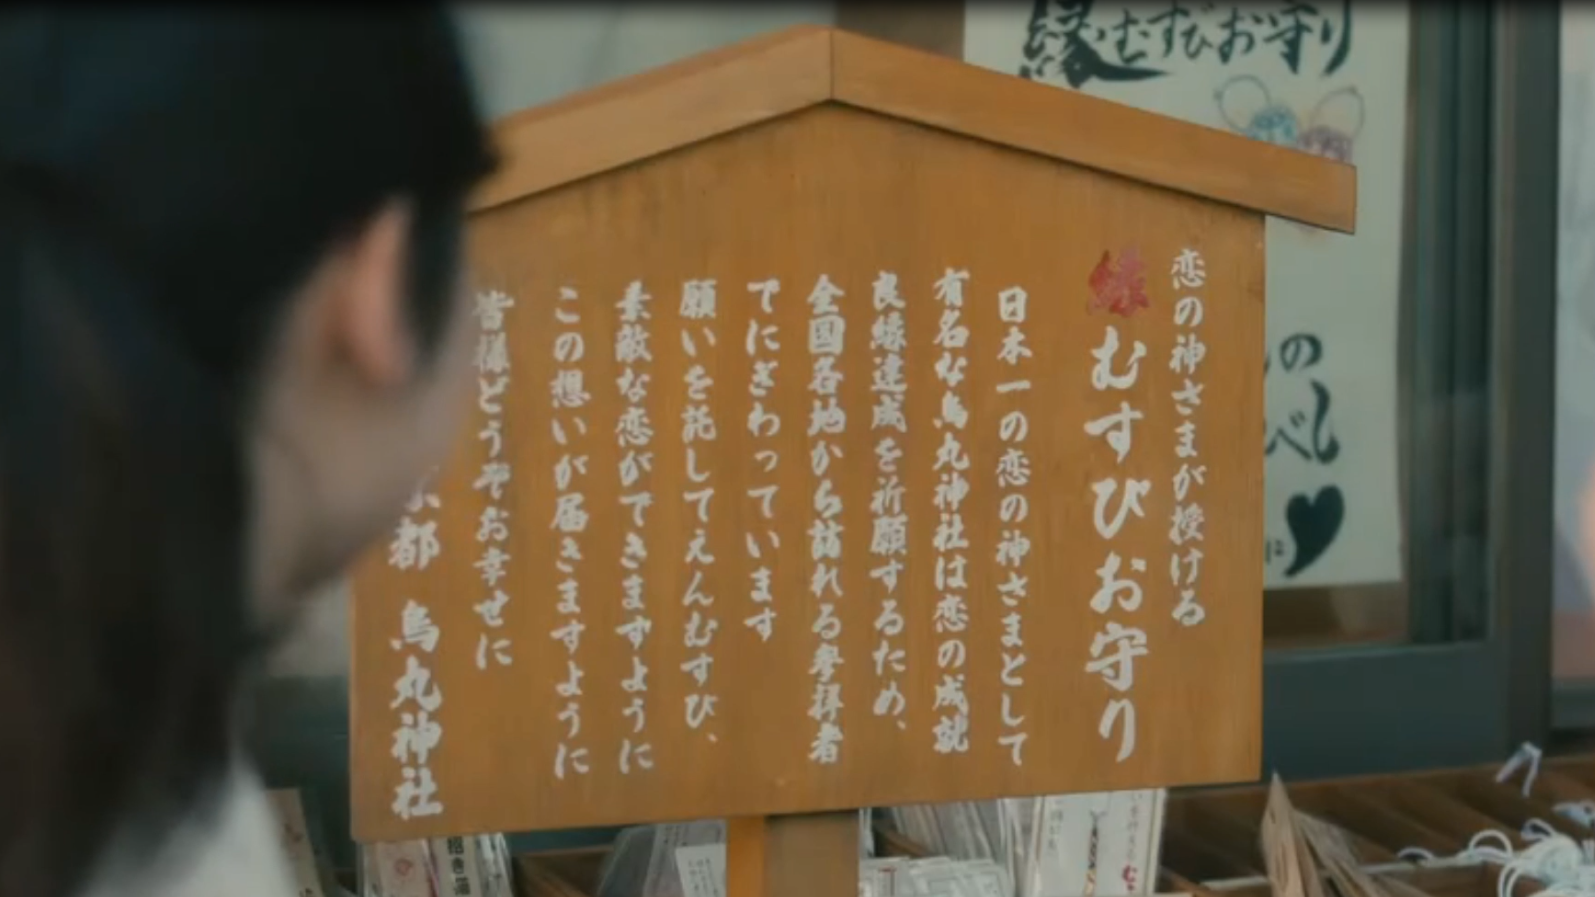 恋の神さまが授ける
縁むすびお守り
日本一の恋の神さまとして
有名な烏丸神社は恋の成就
良縁達成を祈願するため、
全国各地から訪れる参拝者
でにぎわっています
願いを託してえんむすび、
素敵な恋ができますように
この想いが届きますように
皆様どうぞお幸せに
京都 烏丸神社
縁むすびお守り
招き